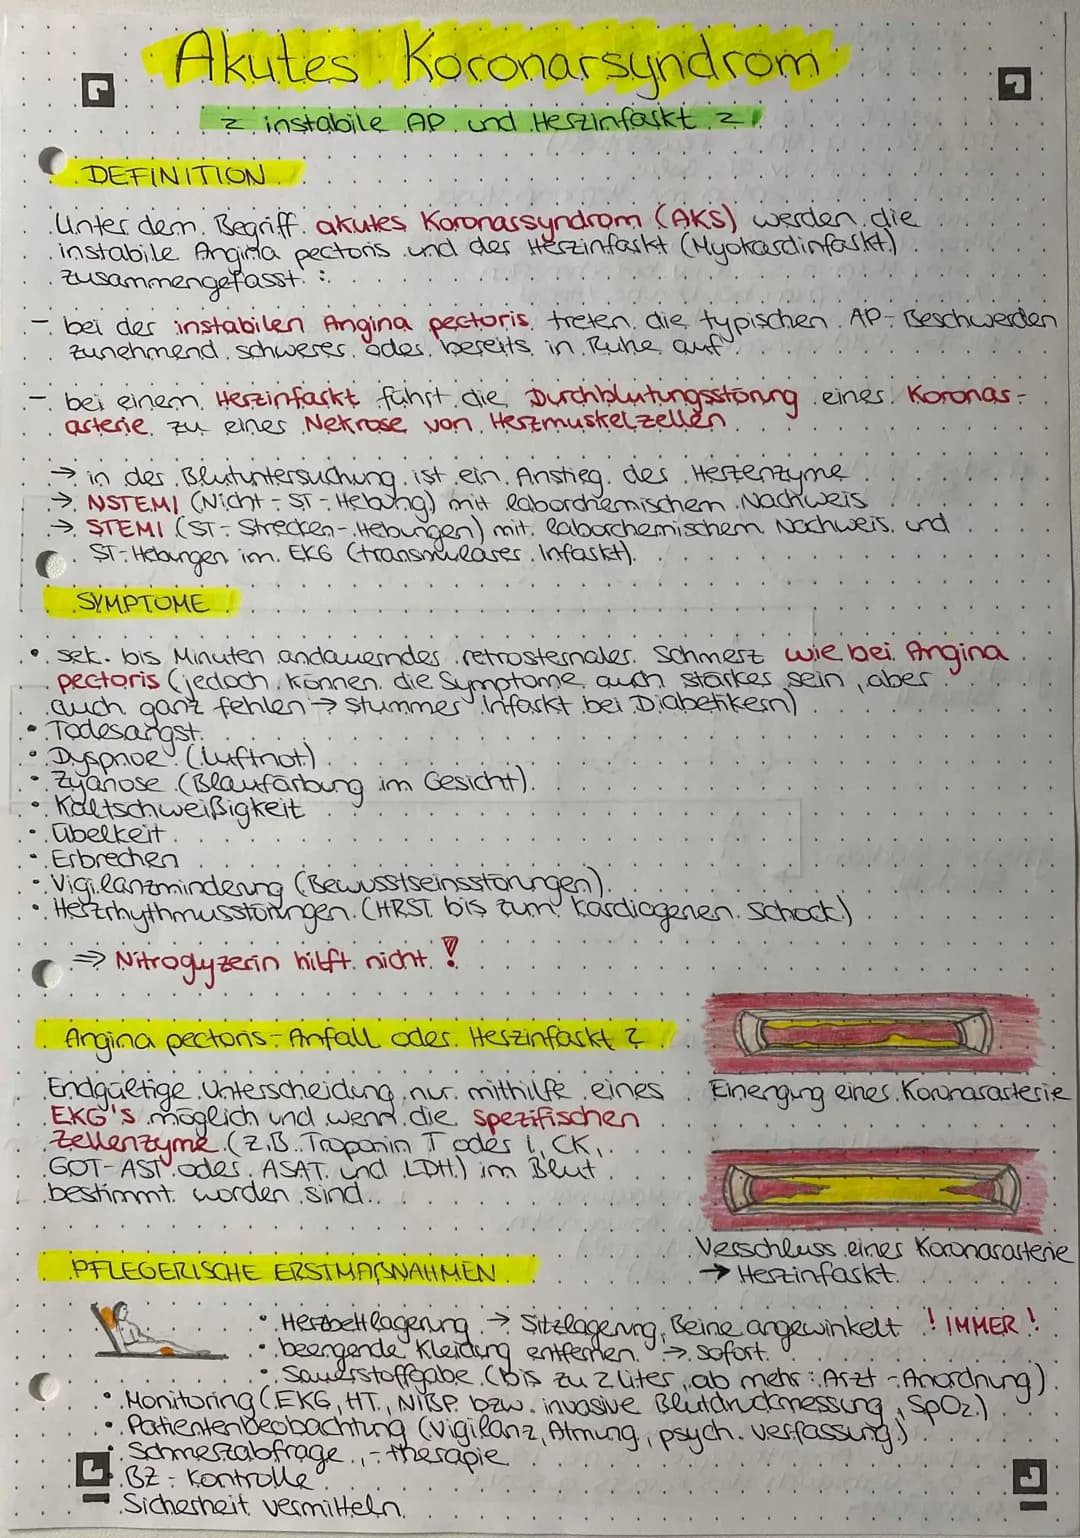 Akutes Koronarsyndrom
~ instabile AP und Herzinfarkt ~
DEFINITION
Unter dem Begriff akutes Koronarsyndrom (AKS) werden die
instabile Angina pectoris und der Herzinfarkt (Myokardinfarkt)
zusammengefasst :
- bei der instabilen Angina pectoris treten die typischen AP-Beschwerden
zunehmend schwerer oder bereits in Ruhe auf
- bei einem Herzinfarkt führt die Durchblutungsstörung einer Koronar-
arterie zu einer Nekrose von Herzmuskelzellen
→ in der Blutuntersuchung ist ein Anstieg der Herzenzyme
→ NSTEMI (Nicht-ST-Hebung) mit laborchemischem Nachweis
→ STEMI (ST-Strecken-Hebungen) mit laborchemischem Nachweis und
ST-Hebungen im EKG (transmuraler Infarkt)
SYMPTOME
• sek. bis Minuten andauerndes retrosternaler Schmerz wie bei Angina
pectoris (jedoch können die Symptome auch stärker sein, aber
auch ganz fehlen → stummer Infarkt bei Diabetikern)
• Todesangst
• Dyspnoe (Luftnot)
• Zyanose (Blaufärbung im Gesicht)
• Kaltschweißigkeit
• Übelkeit
• Erbrechen
• Vigilanzminderung (Bewusstseinsstörungen)
• Herzrhythmusstörungen (HRST bis zum kardiogenen Schock)
⇒ Nitroglyzerin hilft nicht !
Angina pectoris-Anfall oder Herzinfarkt ?
Endgültige Unterscheidung nur mithilfe eines
EKG's möglich und wenn die spezifischen
Zellenzyme (z.B. Troponin T oder I, CK,
GOT-AST oder ASAT und LDH) im Blut
bestimmt worden sind.
Einengung einer Koronararterie
Verschluss einer Koronararterie
→ Herzinfarkt
PFLEGERISCHE ERSTMAßNAHMEN
• Herzbettlagerung → Sitzlagerung, Beine angewinkelt ! IMMER !
• beengende Kleidung entfernen → sofort
• Sauerstoffgabe (bis zu 2 Liter, ab mehr : Arzt-Anordnung)
• Monitoring (EKG, HT, NIBP bzw. invasive Blutdruckmessung, SpO2)
• Patientenbeobachtung (Vigilanz, Atmung, psych. Verfassung)
• Schmerzabfrage, -therapie
• BZ-Kontrolle
• Sicherheit vermitteln